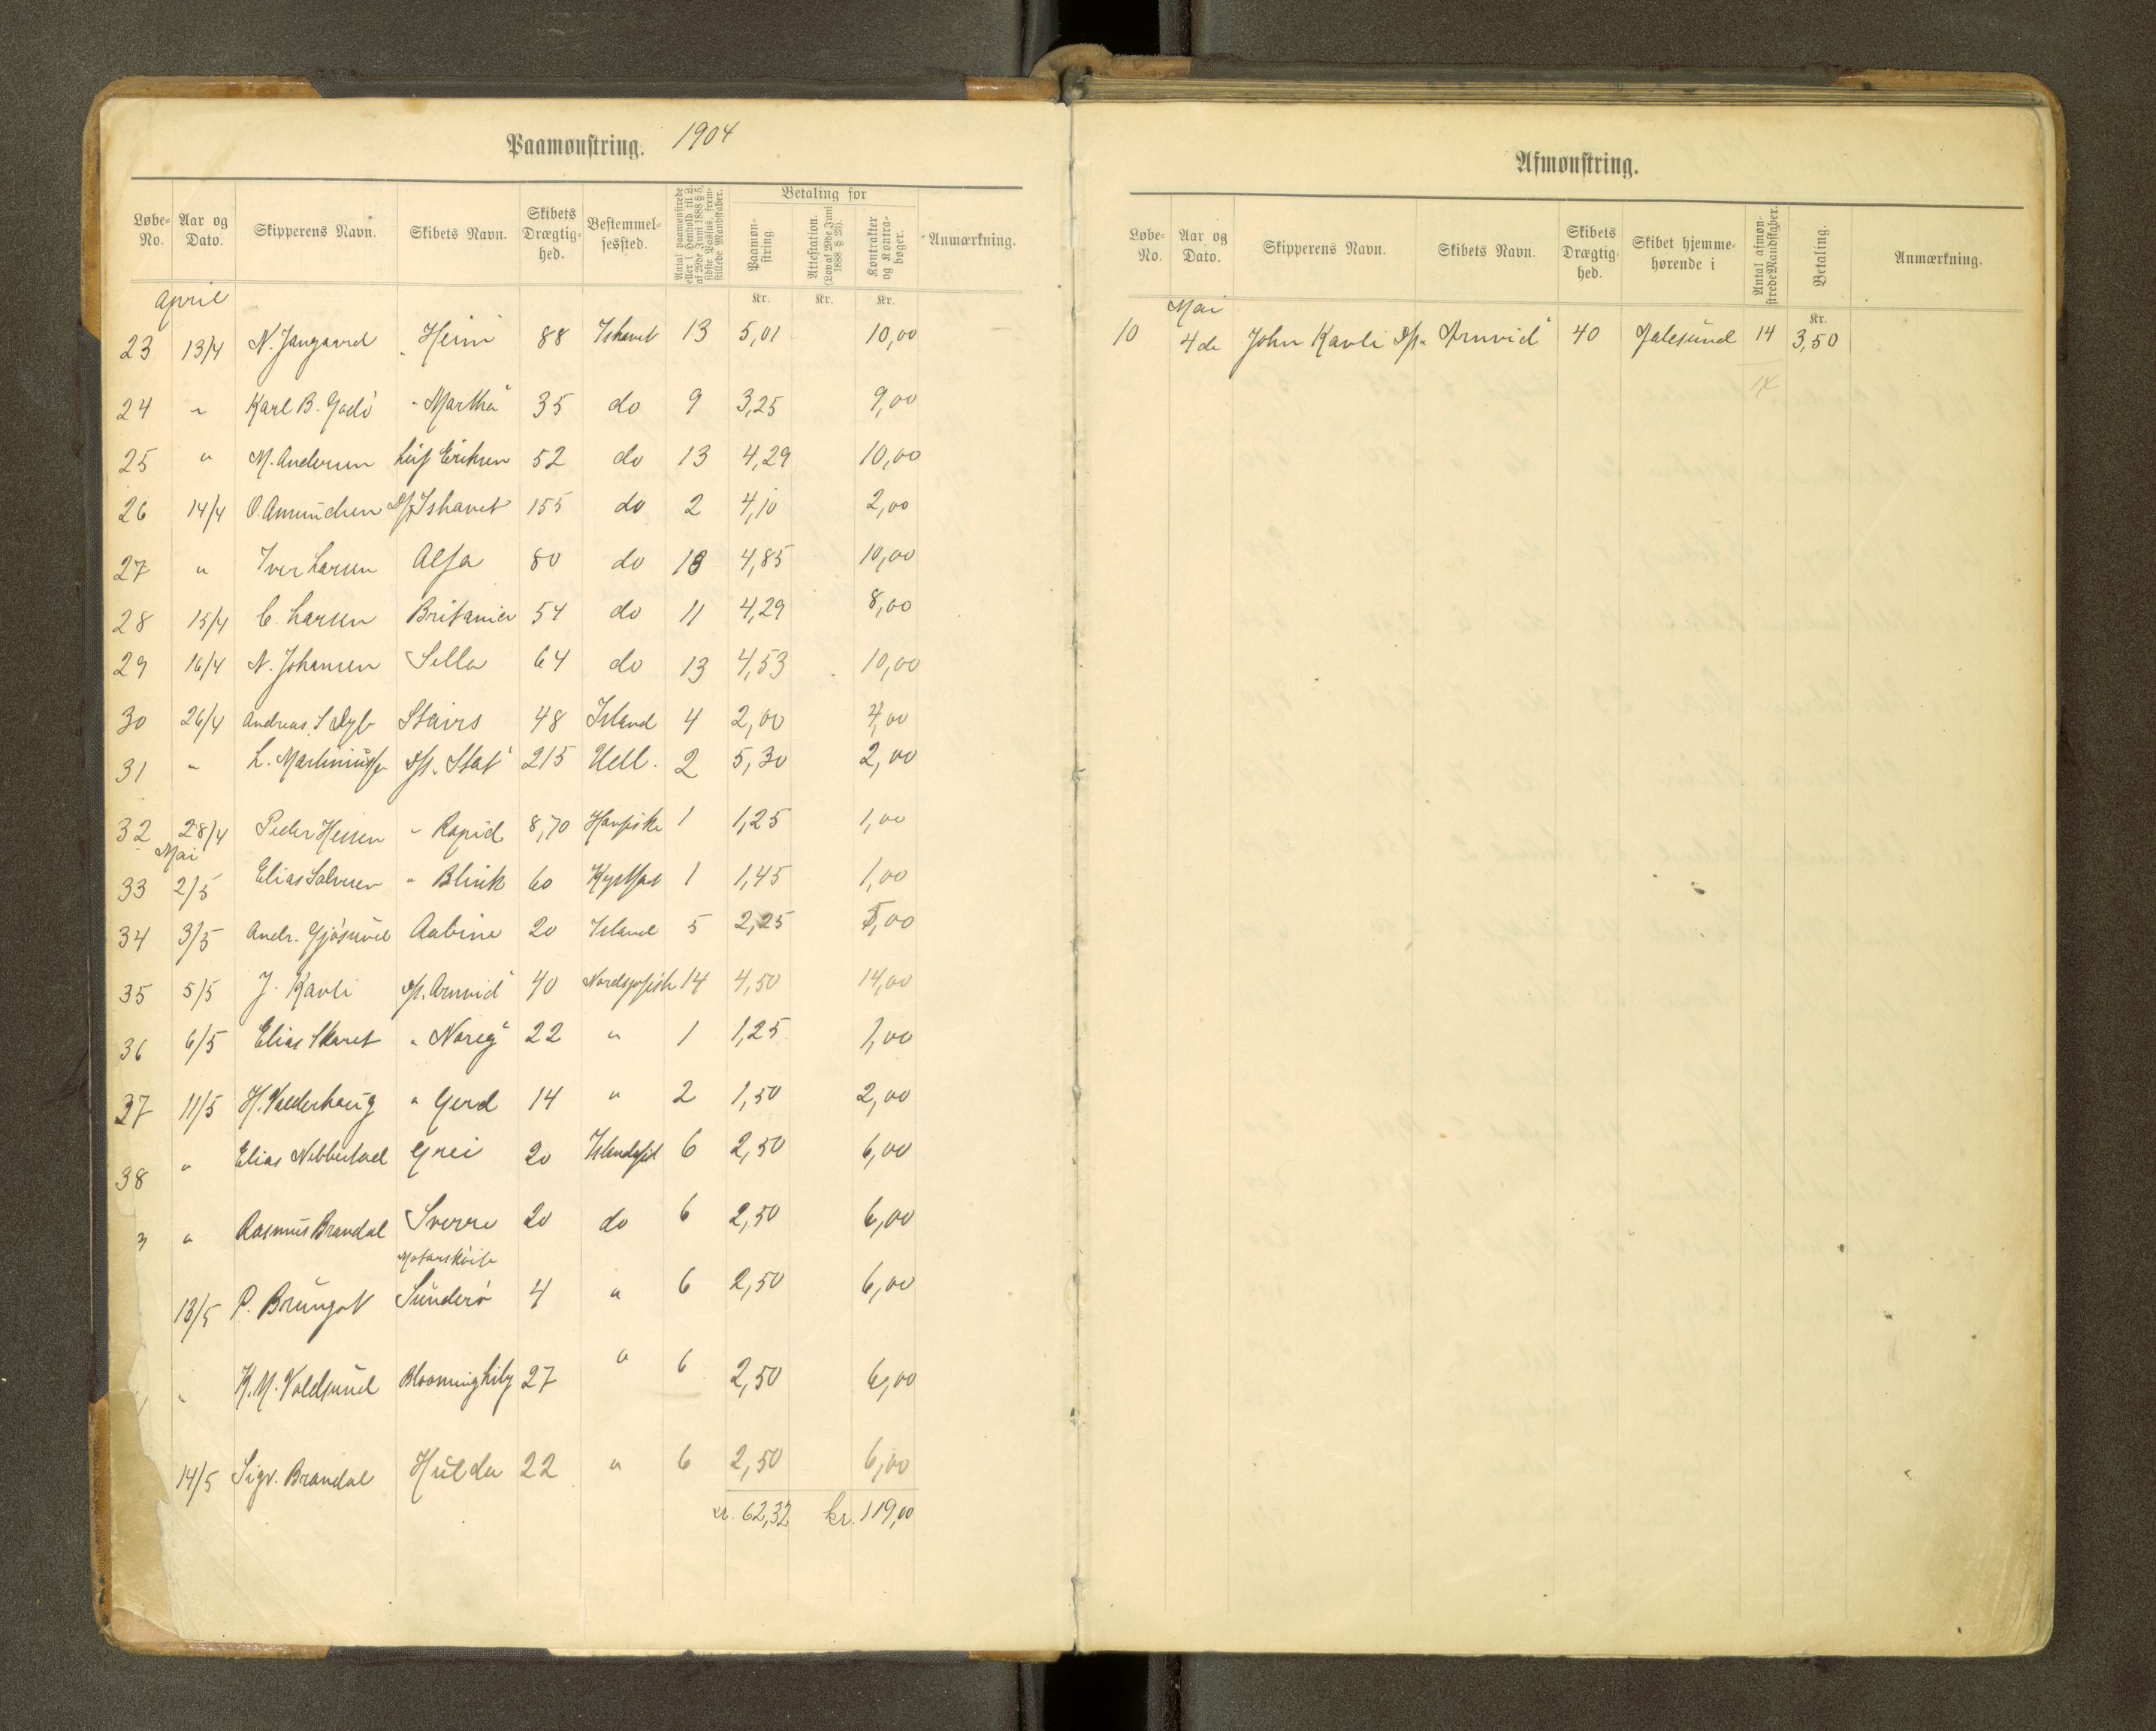 Paamonstring. 1904
Løbe-No. Aar og Dato. Skipperens Navn. Skibets Navn. Skibets Drægtig-hed. Bestemmel-sessted. Antal paamonstrede eller i Henhold til L. af 29de Juni 1888 § 5, sidste Passus, frem-stillede Mandskaber. Betaling for Paamon-string. Attestation. (Lov af 29de Juni 1888 § 23). Kontrakter og Kontra-bøger. Anmærkning.
April Kr. Kr. Kr.
23 13/4 N. Jangaard "Heim" 88 Ishavet 13 5,01 10,00
24 " Karl B. Godö "Martha" 35 do 9 3,25 9,00
25 " M. Andersen Leif Eriksen 52 do 13 4,29 10,00
26 14/4 O. Amundsen D/sp Ishavet 155 do 2 4,10 2,00
27 " Iver Larsen Alfa 80 do 13 4,85 10,00
28 15/4 C. Larsen Britania 54 do 11 4,29 8,00
29 16/4 N. Johansen Sella 64 do 13 4,53 10,00
30 26/4 Andreas S Dyb Stairs 48 Island 4 2,00 4,00
31 " L. Martinussen D/sp. "Stat" 215 Uell. 2 5,30 2,00
32 28/4 Peder Hessen " Rapid 8,70 Havfiske 1 1,25 1,00
Mai
33 2/5 Elias Salvesen " Blink 60 Kystfart 1 1,45 1,00
34 3/5 Andr. Gjøsund Aabine 20 Island 5 2,25 5,00
35 5/5 J. Kavli D/sp. Arnvid" 40 Nordsjøfisk 14 4,50 14,00
36 6/5 Elias Skaret " Noreg" 22 " 1 1,25 1,00
37 11/5 H. Valderhaug " Gerd 14 " 2 1,50 2,00
38 " Elias Nibbestad Grei 20 Islandsfisk 6 2,50 6,00
3 " Rasmus Brandal Sverre 20 do 6 2,50 6,00
Motorskøite
13/5 P. Brungot Sunderö 4 " 6 2,50 6,00
" K. M. Voldsund Blooming Lily 27 " 6 2,50 6,00
14/5 Sigv. Brandal Hulda 22 " 6 2,50 6,00
kr. 62,32 kr. 119,00
Afmonstring.
Løbe-No. Aar og Dato. Skipperens Navn. Skibets Navn. Skibets Drægtig-hed. Skibet hjemme-hørende i Antal afmon-strede Mandskaber. Betaling. Anmærkning.
Mai Kr.
10 4de John Kavli D/sp "Arnvid" 40 Aalesund 14 3,50
14